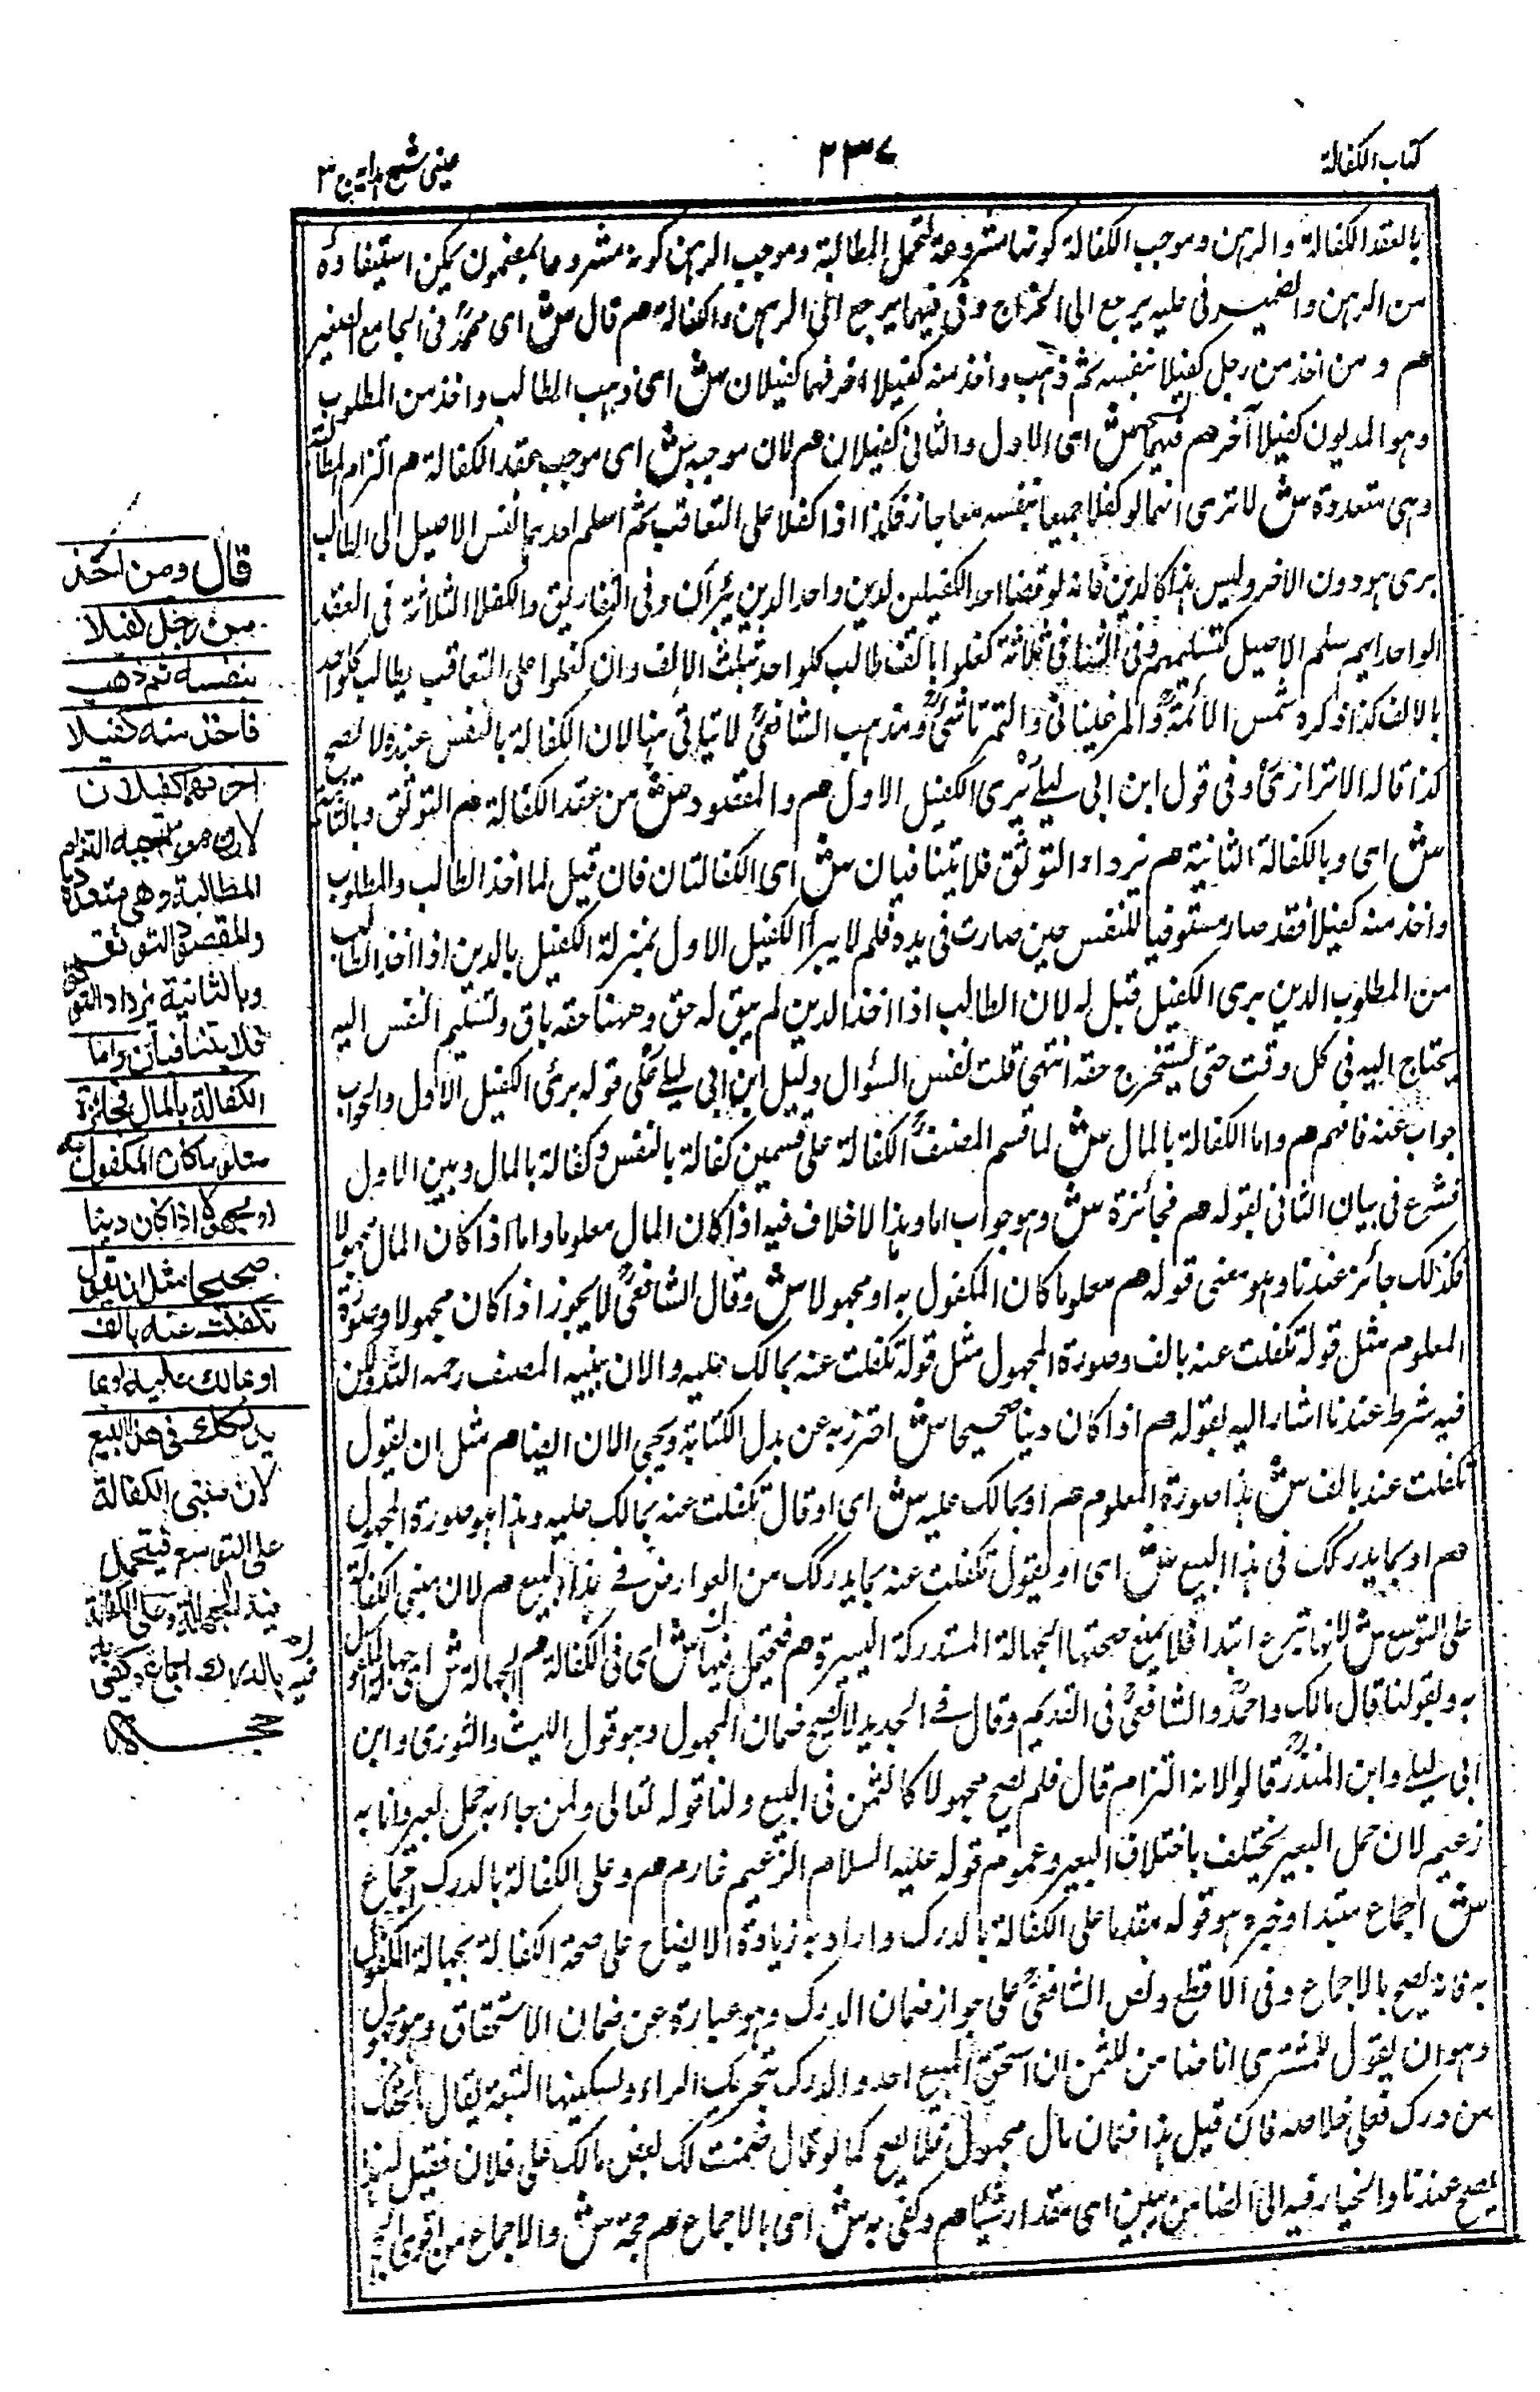 كتاب الكفالة
٢٣٧
عینی شرح ہدایہ ج ٣
بالعقد الكفالة والرہن وموجب الكفالة كونہا مشروعة لتحمل المطالبة وموجب الرہن كونہ مشروعا بمضمون يمكن استيفاؤہ
من الرہن والضمير فی عليہ يرجع الی الخراج وفی فيہما يرجع الی الرہن والكفالة هم قال ش ای محمدؒ فی الجامع الصغير
هم ومن اخذ من رجل كفيلا بنفسہ ثم ذہب واخذ منہ كفيلا اخر فہما كفيلان ش ای ذہب الطالب واخذ من المطلوب
وہو المديون كفيلا آخر هم فہما ش ای الاول والثانی كفيلان هم لان موجبہ ش ای موجب عقد الكفالة هم التزام المطالبة
وہی متعددة ش لا تری انہما لو كفلا جميعا بنفسہ معا جاز فكذا اذا كفلا علی التعاقب ثم اسلم احدہما نفس الاصيل الی الطالب
بری ہو دون الاخر وليس ہذا كالدين فانہ لو قضا احد الكفيلين لدين واحد الدين يبرآن وفی التفاريق والكفلا الثلاثة فی العقد
الواحد ايہم سلم الاصيل كتسليمہم وفی الشافی ثلاثة كفلوا بالف طالب كلواحد بثلث الالف وان كفلوا علی التعاقب يطالب كلواحد
بالالف كذا ذكرہ شمس الائمةؒ والمرغينانیؒ والتمرتاشیؒ ومذہب الشافعیؒ لا تیاتی ہنا لان الكفالة بالنفس عندہ لا تصح
كذا قالہ الاترازیؒ وفی قول ابن ابی لیلےؒ بری الكفيل الاول هم والمقصود ش من عقد الكفالة هم التوثق وبالثانية
ش ای وبالكفالة الثانية هم يزداد التوثق فلا يتنافيان ش ای الكفالتان فان قيل لما اخذ الطالب والمطلوب
واخذ منہ كفيلا فقد صار مستوفيا للنفس حين صارت فی يدہ فلم لا يبرأ الكفيل الاول بمنزلة الكفيل بالدين اذا اخذ الطالب
من المطلوب الدين بری الكفيل قيل لہ لان الطالب اذا اخذ الدين لم يبق لہ حق وههنا حقہ باق وتسليم النفس اليہ
يحتاج اليہ فی كل وقت حتی يستخرج حقہ انتہی قلت نفس السؤال دليل ابن ابی لیلےؒ علی قولہ بری الكفيل الاول والجواب
جواب عنہ فافہم هم واما الكفالة بالمال ش لما قسم المصنفؒ الكفالة علی قسمين كفالة بالنفس وكفالة بالمال وبين الاول
فشرع فی بيان الثانی لقولہ هم فجائزة ش وہو جواب اما وہذا لا خلاف فيہ اذا كان المال معلوما واما اذا كان المال مجہولا
فكذلك جائز عندنا وہو معنی قولہ هم معلوما كان المكفول بہ او مجہولا ش وقال الشافعیؒ لا يجوز اذا كان مجہولا وصورة
المعلوم مثل قولہ تكفلت عنہ بالف وصورة المجہول مثل قولہ تكفلت عنہ بمالك عليہ والان يبينہ المصنف رحمہ اللہ ولكن
فيہ شرط عندنا اشار اليہ بقولہ هم اذا كان دينا صحيحا ش احترز بہ عن بدل الكتابة ويجی الان ايضا هم مثل ان يقول
تكفلت عنہ بالف ش ہذا صورة المعلوم هم او بمالك عليہ ش ای او قال تكفلت عنہ بمالك عليہ وہذا ہو صورة المجہول
هم او بما يدركك فی ہذا البيع ش ای او يقول تكفلت عنہ بما يدركك من العوارض فے ہذا البيع هم لان مبنی الكفالة
علی التوسع ش لانہا تبرع ابتدا فلا يمنع صحتہا الجہالة المستدركة اليسيرة هم فتحمل فيہا ش ای فی الكفالة هم الجہالة ش ای جہالة المكفول
بہ وبقولنا قال مالك واحمدؒ والشافعیؒ فی القديم وقال فے الجديد لا يصح ضمان المجہول وہو قول الليث والثوری وابن
ابی لیلے وابن المنذرؒ قالوا لانہ التزام قال فلم يصح مجہولا كالثمن فی البيع ولنا قولہ تعالی ولمن جاء بہ حمل بعير وانا بہ
زعيم لان حمل البعير يختلف باختلاف البعير وعموم قولہ عليہ السلام الزعيم غارم هم وعلی الكفالة بالدرك اجماع
ش اجماع مبتدا وخبرہ ہو قولہ مقدما علی الكفالة بالدرك واراد بہ زيادة الايضاح علی صحة الكفالة بجہالة المكفول
بہ فانہ يصح بالاجماع وفی الاقطع ونص الشافعیؒ علی جواز ضمان الدرك وہو عبارة عن ضمان الاستحقاق وہو مجہول
وہو ان يقول للمشتری انا ضامن للثمن ان استحق المبيع احد والدرك بتحريك الراء وتسكينہا التبعة يقال ما لحقك
من درك فعلی خلاصہ فان قيل ہذا ضمان مال مجہول فلا يصح كما لو قال ضمنت لك بعض مالك علی فلان فقيل لہ ہذا
يصح عندنا والخيار فيہ الی الضامن يبين ای مقدار شيئا هم وكفی بہ ش ای بالاجماع هم حجة ش والاجماع من اقوی الحجج
قال ومن اخذ
من رجل كفيلا
بنفسه ثم ذهب
فاخذ منه كفيلا
اخر فهما كفيلان
لان موجبه التزام
المطالبة وهي متعددة
والمقصود التوثق
وبالثانية يزداد التوثق
فلا يتنافيان واما
الكفالة بالمال فجائزة
معلوما كان المكفول به
او مجهولا اذا كان دينا
صحيحا مثل ان يقول
تكفلت عنه بالف
او بمالك عليه او بما
يدركك في هذا البيع
لان مبنى الكفالة
على التوسع فيتحمل
فيه الجهالة وعلى الكفالة
بالدرك اجماع وكفى به
حجة